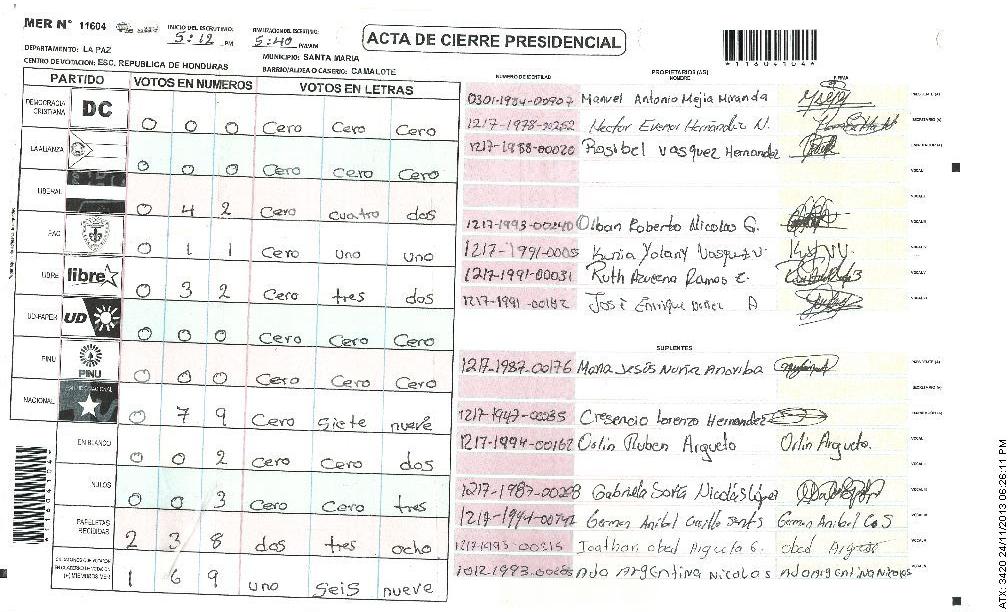 MER N° 11604
INICIO DEL ESCRUTINIO:
5:12 PM
FINALIZACION ESCRUTINIO:
5:40 PM/AM
ACTA DE CIERRE PRESIDENCIAL
*11604104*
DEPARTAMENTO: LA PAZ
MUNICIPIO: SANTA MARIA
CENTRO DE VOTACION: ESC. REPUBLICA DE HONDURAS
BARRIO/ALDEA O CASERIO: CAMALOTE
PARTIDO VOTOS EN NUMEROS VOTOS EN LETRAS
DEMOCRACIA CRISTIANA DC 0 0 0 Cero Cero Cero
LA ALIANZA 0 0 0 Cero Cero Cero
LIBERAL 0 4 2 Cero cuatro dos
PAC 0 1 1 Cero uno uno
LIBRE libre 0 3 2 Cero tres dos
UD-FAPER UD 0 0 0 Cero Cero Cero
PINU PINU 0 0 0 Cero Cero Cero
NACIONAL 0 7 9 Cero siete nueve
EN BLANCO 0 0 2 Cero Cero dos
NULOS 0 0 3 Cero Cero tres
PAPELETAS RECIBIDAS 2 3 8 dos tres ocho
(+) MIEMBROS MER 1 6 9 uno seis nueve
*11604104*
NUMERO DE IDENTIDAD PROPIETARIOS (AS) NOMBRE FIRMA
0301-1984-00907 Manuel Antonio Mejia Miranda
1217-1978-00252 Hector Evenor Hernandez N.
1217-1988-00020 Rosibel Vasquez Hernandez
1217-1993-00240 Olban Roberto Nicolas G.
1217-1991-00005 Kenia Yolany Vasquez V.
1217-1991-00031 Ruth Ramos E.
1217-1991-00182 José Enrique A
SUPLENTES
1217-1987-00176 Maria Jesús
1217-1947-00035 Cresencio Lorenzo Hernandez
1217-1994-00162 Orlin Ruben Argueta Orlin Argueta.
1217-1987-00208 Gabriela Nicolás López
German Anibel German Anibel
Jonathan obed Argueta G. obed Argueta
Ada Argentina Nicolas Ada Argentina Nicolas
ATX: 3420 24/11/2013 06:26:11 PM